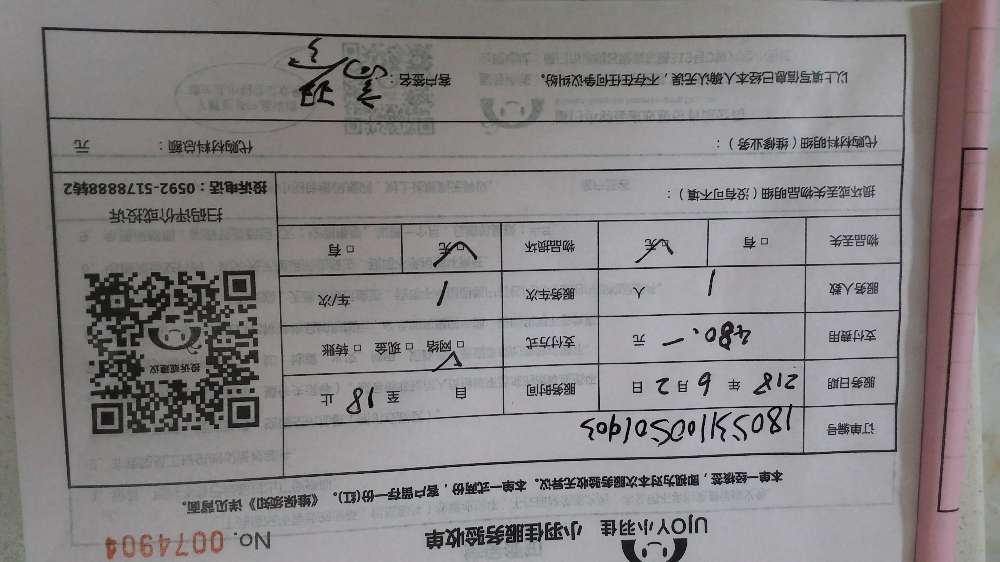 UJOY小羽佳 小羽佳服务验收单 No. 0074904
本单一经核签，即视为对本次服务验收无异议。本单一式两份，客户留存一份(红)。《维保须知》详见背面。
订单编号
服务日期 218 年 6 月 2 日 服务时间 自 至 18 止
支付费用 480.一 元 支付方式 □ 网络 □ 现金 □ 转账
服务人数 1 人 服务车次 1 车/次
物品丢失 □ 有 □ 无 物品损坏 □ 无 □ 有
投诉或建议
扫码评价或投诉
投诉电话：0592-5178888转2
损坏或丢失物品明细（没有可不填）：
代购材料明细（维修业务）： 代购材料总额： 元
以上填写信息已经本人确认无误，不存在任何争议纠纷。 客户签名：